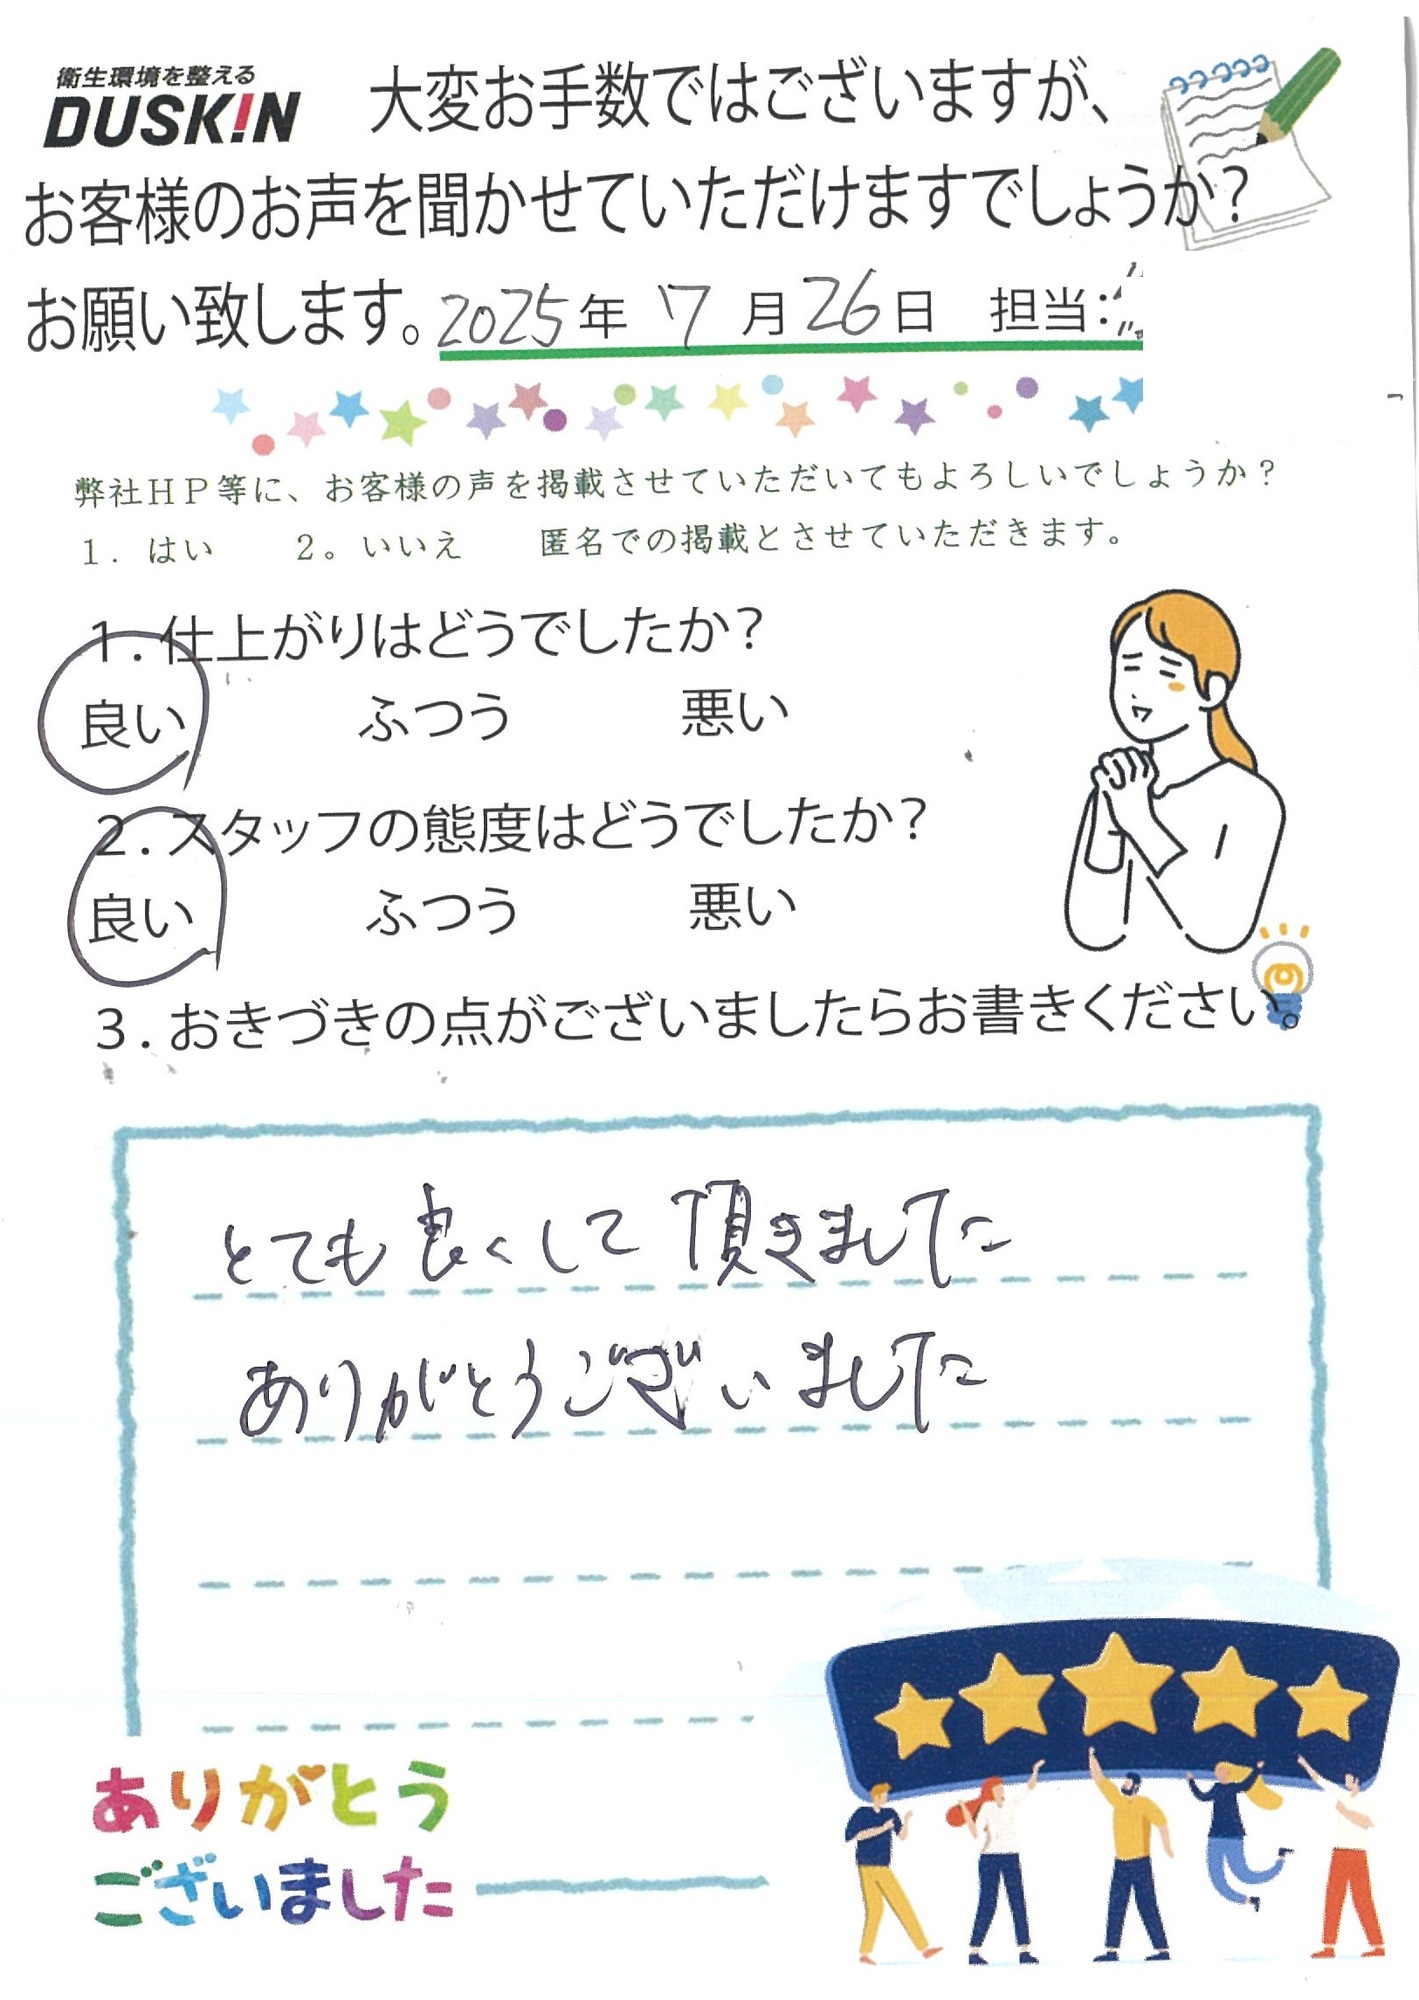 衛生環境を整える
DUSKIN 大変お手数ではございますが、
お客様のお声を聞かせていただけますでしょうか?
お願い致します。2025年 7月26日 担当:
弊社HP等に、お客様の声を掲載させていただいてもよろしいでしょうか?
1. はい 2。いいえ 匿名での掲載とさせていただきます。
1.仕上がりはどうでしたか?
良い ふつう 悪い
2.スタッフの態度はどうでしたか?
良い ふつう 悪い
3.おきづきの点がございましたらお書きください。
とても良くして頂きました
ありがとうございました
ありがとう
ございました